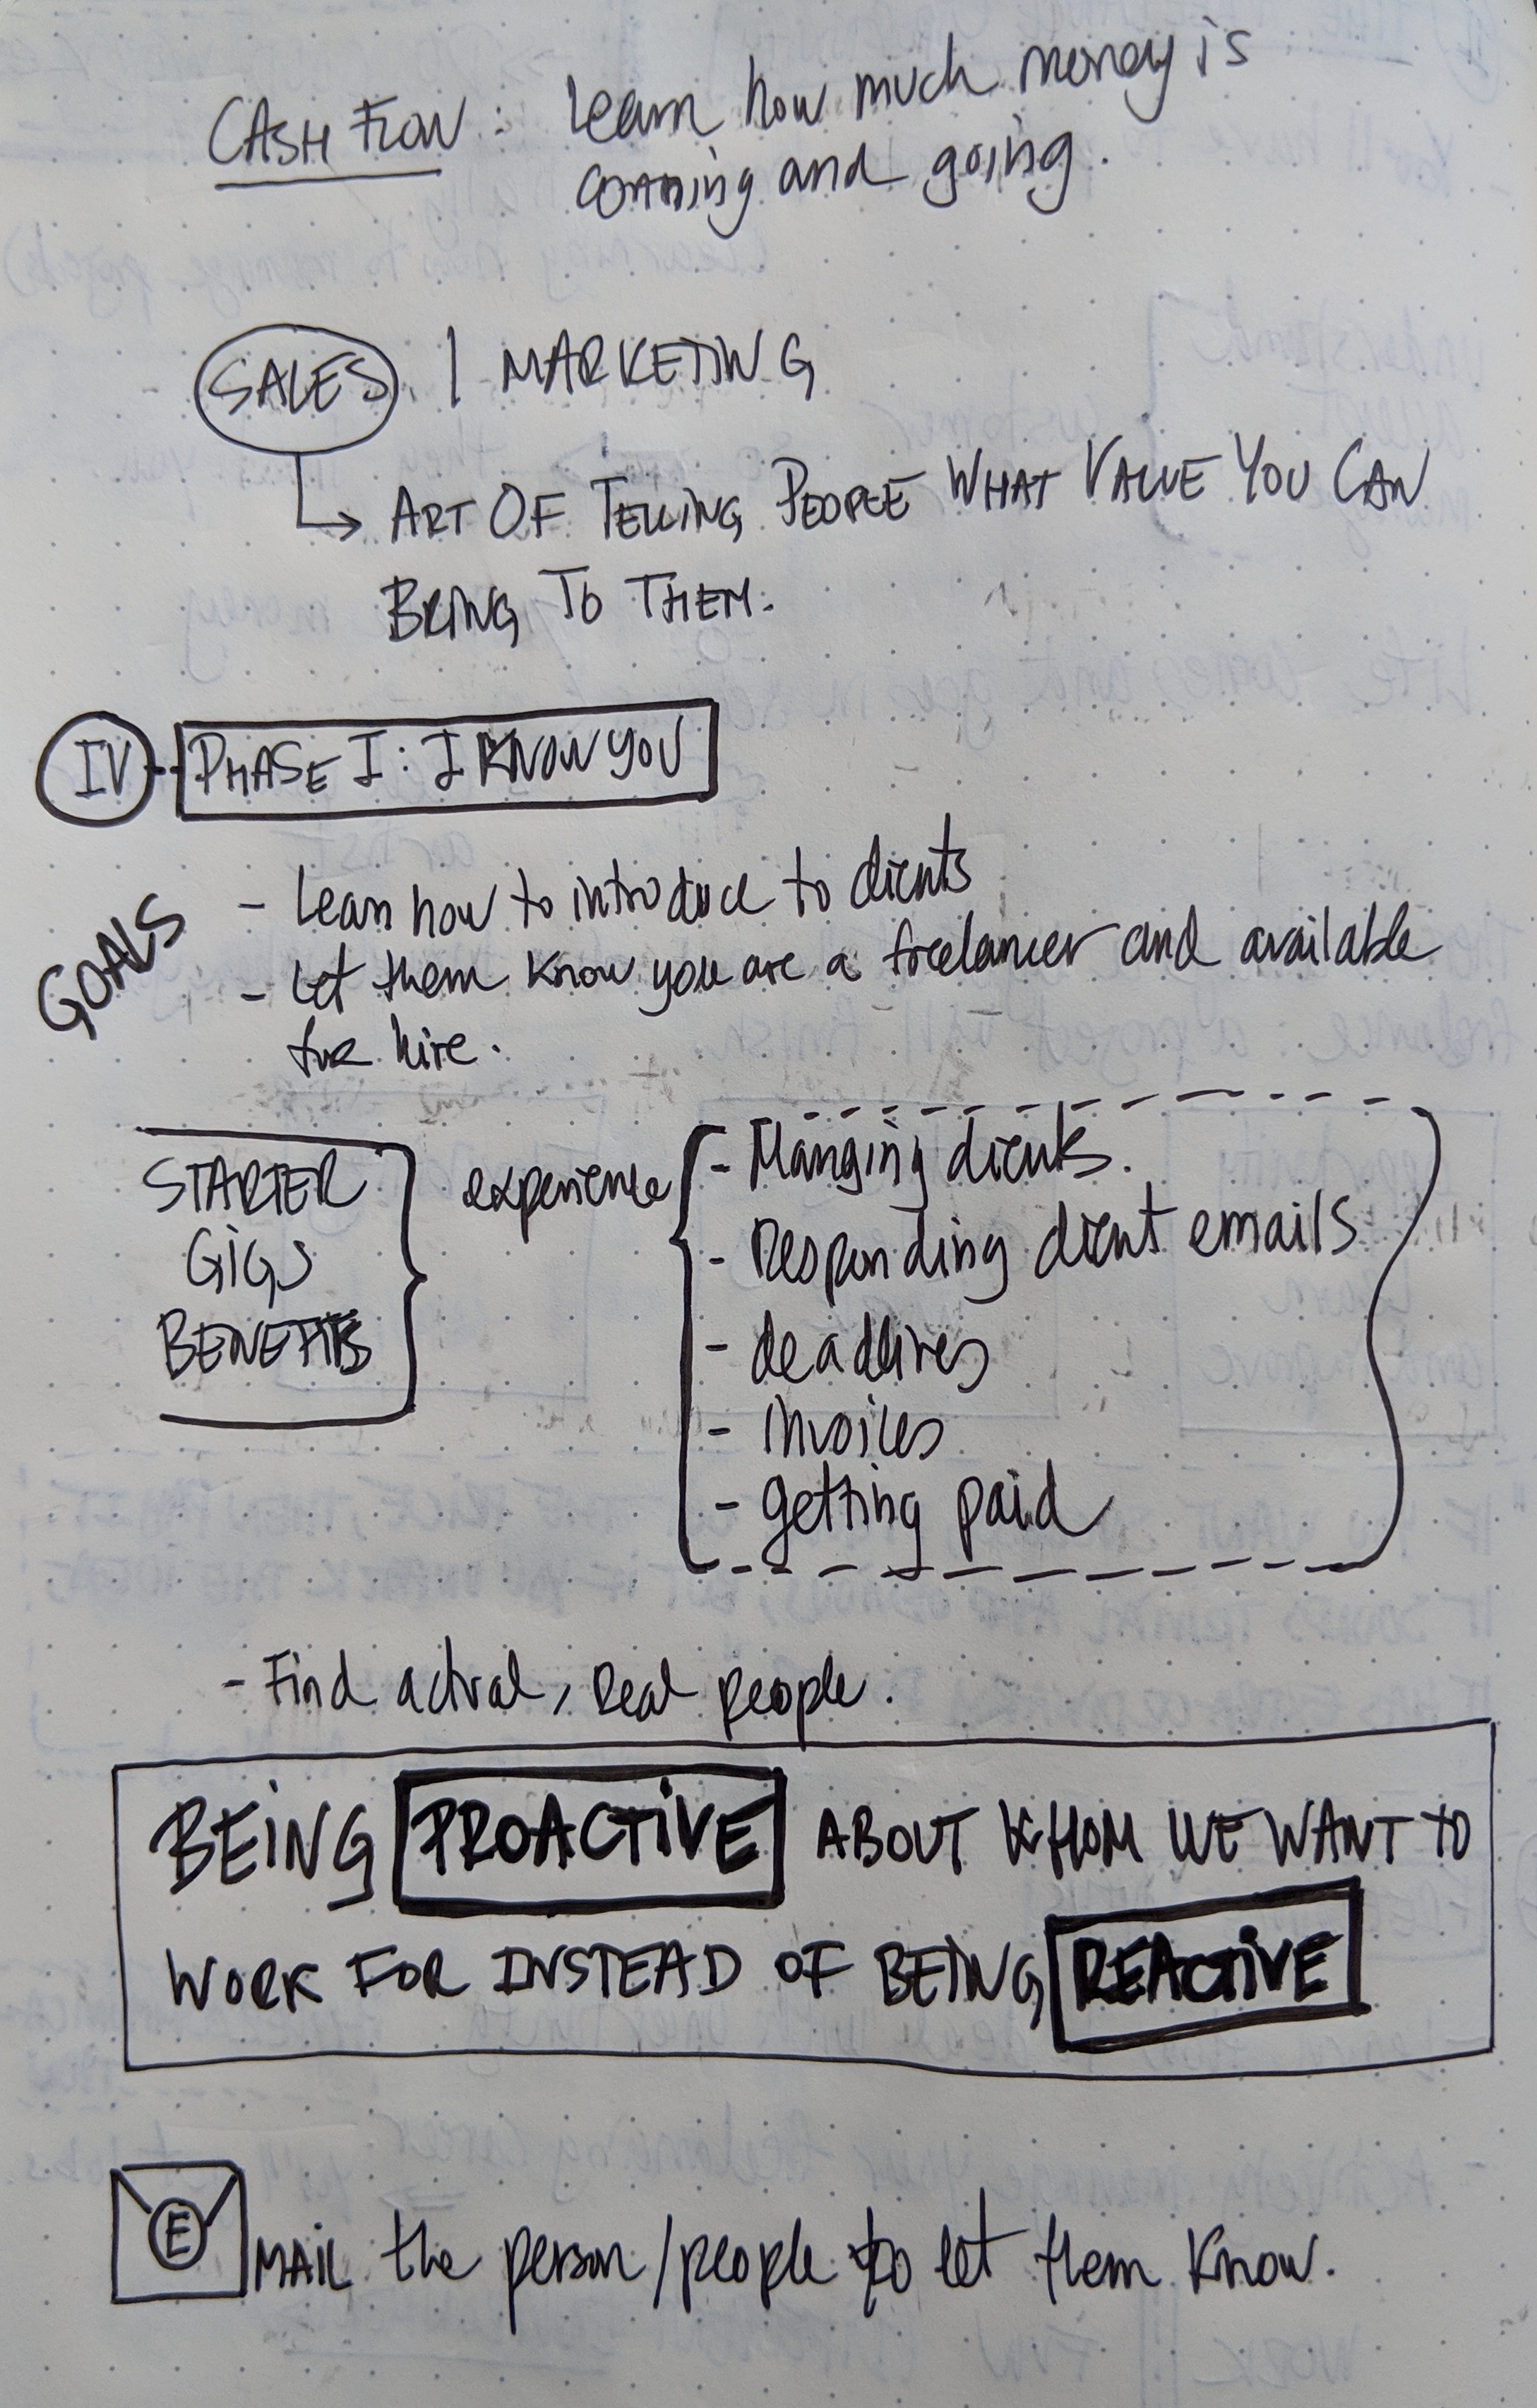 CASH FLOW: Learn how much money is
coming and going.
SALES | MARKETING
ART OF TELLING PEOPLE WHAT VALUE YOU CAN
BRING TO THEM.
IV PHASE I: I KNOW YOU
GOALS
- Learn how to introduce to clients
- Let them know you are a freelancer and available
for hire.
STARTER
GIGS
BENEFITS
experience
- Manging clients.
- Responding client emails
- deadlines
- invoices
- getting paid
- Find actual, real people.
BEING PROACTIVE ABOUT WHOM WE WANT TO
WORK FOR INSTEAD OF BEING REACTIVE
E MAIL the person/people to let them know.